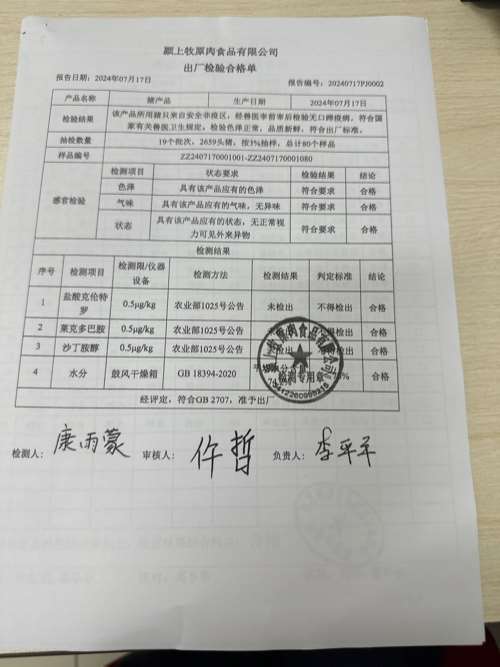 颍上牧原肉食品有限公司
出厂检验合格单
报告日期：2024年07月17日 报告编号：20240717PJ0002
产品名称 猪产品 生产日期 2024年07月17日
检验结果 该产品所用猪只来自安全非疫区，经兽医宰前宰后检验无口蹄疫病，符合国
家有关兽医卫生规定，检验色泽正常，品质新鲜，符合出厂标准。
抽检数量 19个批次，2659头猪，按3%抽样，总计80个样品
样品编号 ZZ2407170001001-ZZ2407170001080
感官检验 检测项目 状态要求 检验结果 结论
色泽 具有该产品应有的色泽 符合要求 合格
气味 具有该产品应有的气味，无异味 符合要求 合格
状态 具有该产品应有的状态，无正常视
力可见外来异物 符合要求 合格
检测结果
序号 检测项目 检测限/仪器
设备 检测方法 检测结果 判定标准 结论
1 盐酸克伦特
罗 0.5μg/kg 农业部1025号公告 未检出 不得检出 合格
2 莱克多巴胺 0.5μg/kg 农业部1025号公告 合格
3 沙丁胺醇 0.5μg/kg 农业部1025号公告 检出 检出 合格
4 水分 鼓风干燥箱 GB 18394-2020 合格
上牧原肉食品有限公司
检测专用章
经评定，符合GB 2707，准予出厂
检测人：康雨蒙 审核人：仵哲 负责人：李平平